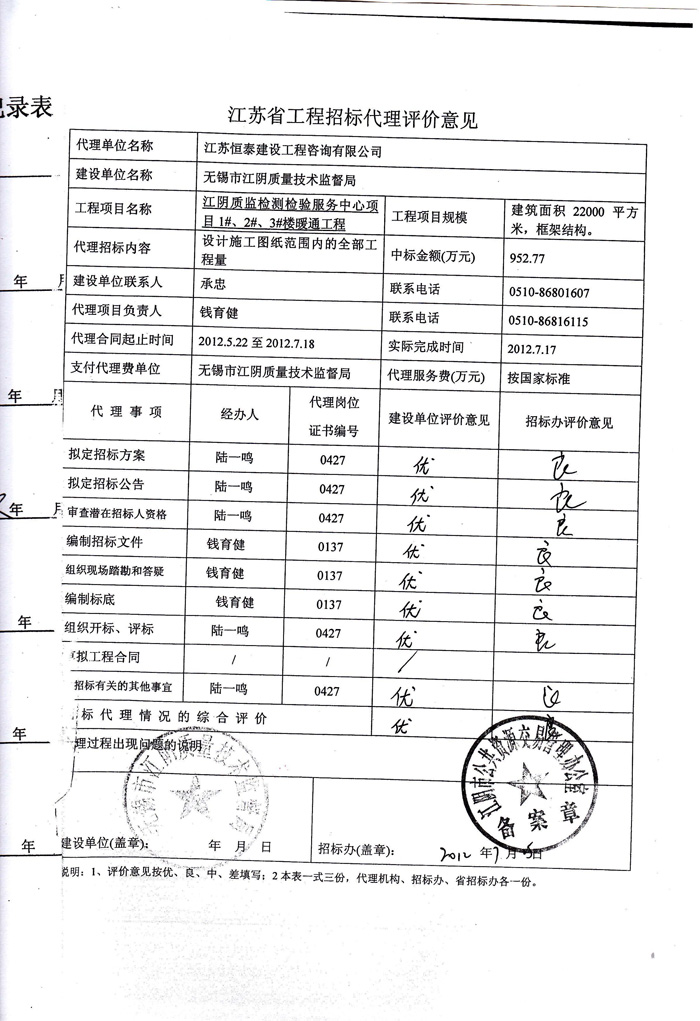 录表
江苏省工程招标代理评价意见
代理单位名称 江苏恒泰建设工程咨询有限公司
建设单位名称 无锡市江阴质量技术监督局
工程项目名称 江阴质监检测检验服务中心项
目1#、2#、3#楼暖通工程
工程项目规模 建筑面积 22000 平方
米，框架结构。
代理招标内容 设计施工图纸范围内的全部工
程量
中标金额(万元) 952.77
建设单位联系人 承忠 联系电话 0510-86801607
代理项目负责人 钱育健 联系电话 0510-86816115
代理合同起止时间 2012.5.22 至 2012.7.18 实际完成时间 2012.7.17
支付代理费单位 无锡市江阴质量技术监督局 代理服务费(万元) 按国家标准
代 理 事 项 经办人 代理岗位
证书编号
建设单位评价意见 招标办评价意见
拟定招标方案 陆一鸣 0427 优 良
拟定招标公告 陆一鸣 0427 优 良
审查潜在招标人资格 陆一鸣 0427 优 良
编制招标文件 钱育健 0137 优 良
组织现场踏勘和答疑 钱育健 0137 优 良
编制标底 钱育健 0137 优 良
组织开标、评标 陆一鸣 0427 优 良
拟工程合同 / / /
招标有关的其他事宜 陆一鸣 0427 优 良
标 代 理 情 况 的 综 合 评 价 优
理过程出现问题的说明
无锡市江阴质量技术监督局
江阴市公共资源交易管理办公室
备案章
建设单位(盖章)： 年 月 日
招标办(盖章)： 2012 年 7 月 日
说明：1、评价意见按优、良、中、差填写；2 本表一式三份，代理机构、招标办、省招标办各一份。
年 月
年 月
年 月
年
年
年